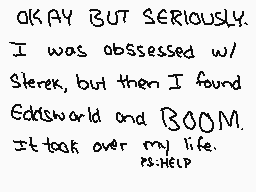 OKAY BUT SERIOUSLY.
I was obssessed w/
Sterek, but then I found
Eddsworld and BOOM.
It took over my life.
PS:HELP